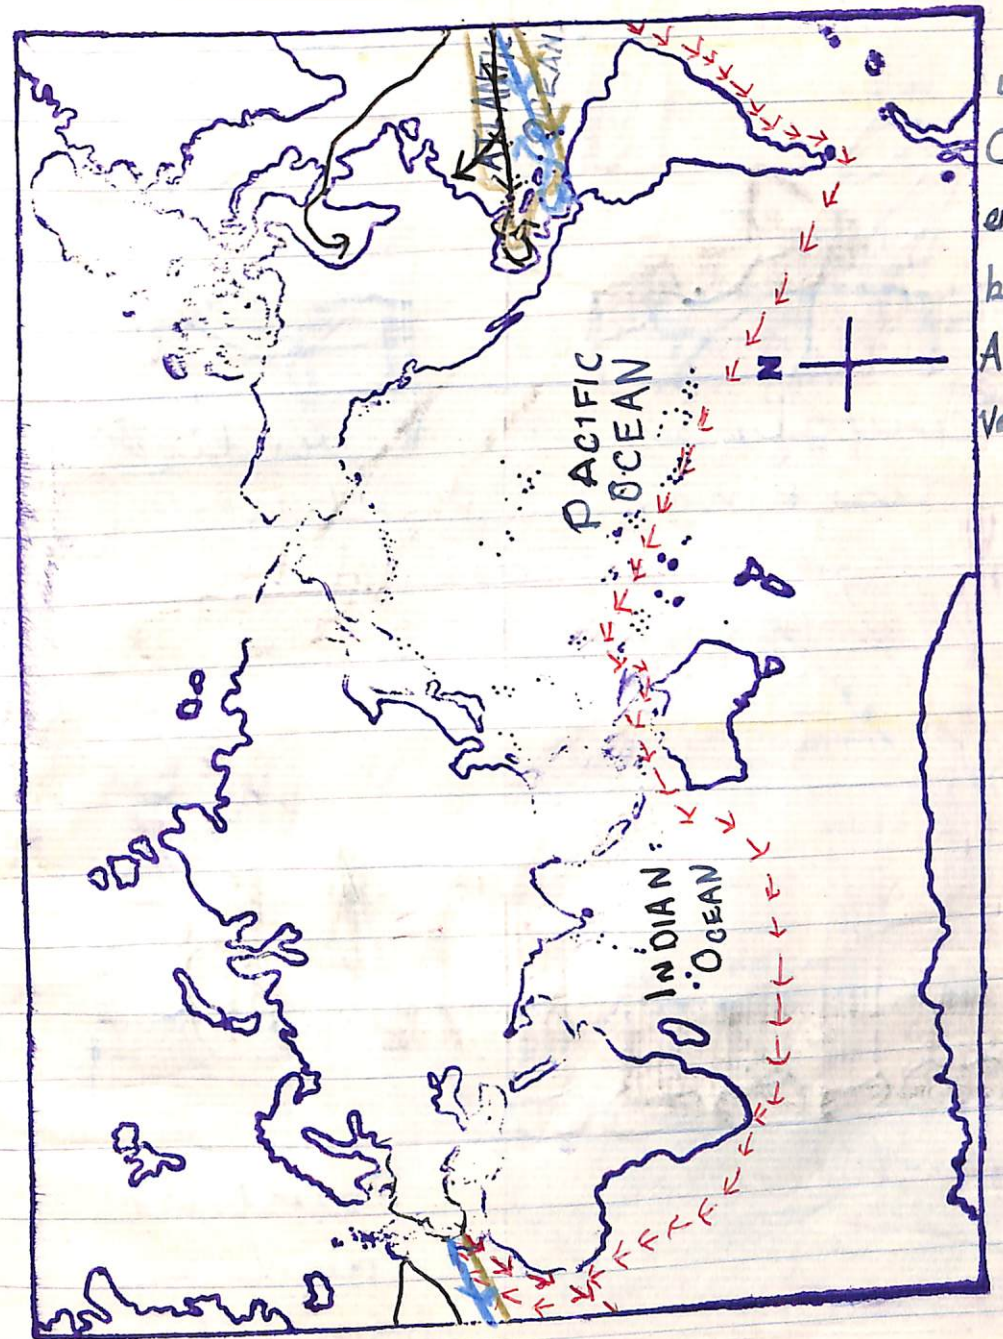 ATLANTIC
OCEAN
PACIFIC
OCEAN
N
INDIAN
OCEAN